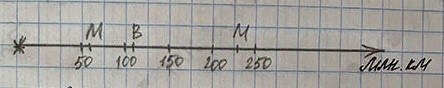 М В М
50 100 150 200 250 млн. км